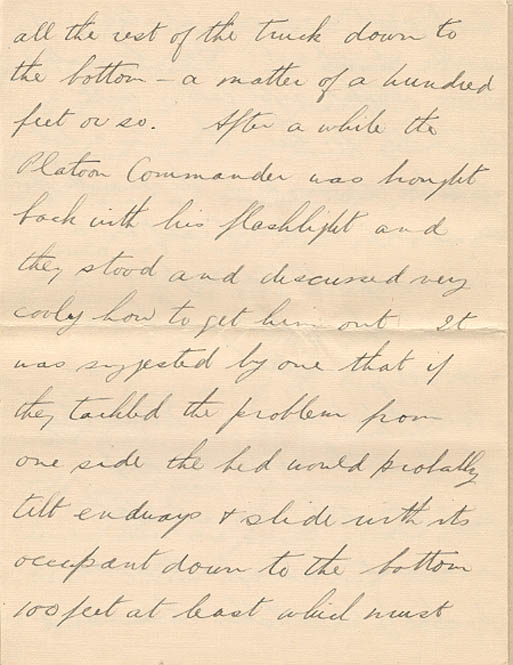 all the rest of the truck down to
the bottom – a matter of a hundred
feet or so. After a while the
Platoon Commander was brought
back with his flashlight and
they stood and discussed very
cooly how to get him out It
was suggested by one that if
they tackled the problem from
one side the bed would probably
tilt endways & slide with its
occupant down to the bottom
100 feet at least which must